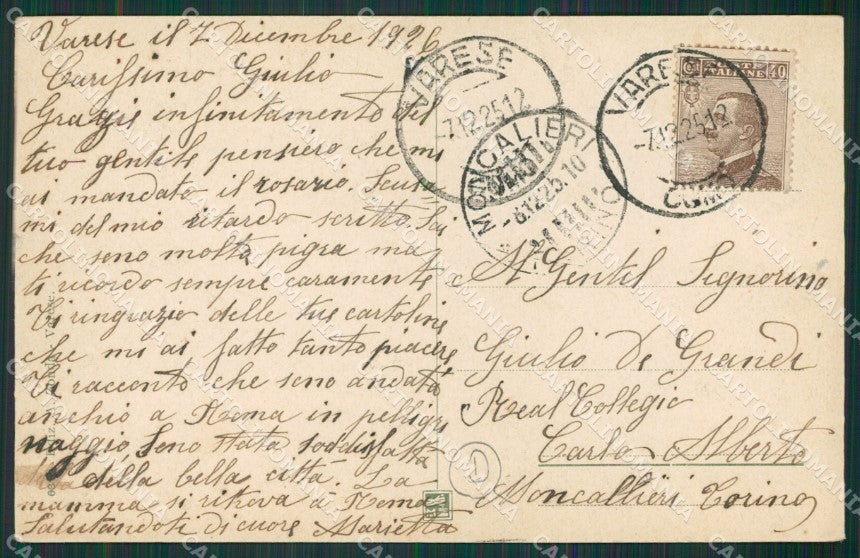 Varese il 7 Dicembre 1926
Carissimo Giulio
Grazie infinitamente del
tuo gentile pensiero che mi
ai mandato il rosario. Scusa
mi del mio ritardo scritto. Sai
che sono molto pigra ma
ti ricordo sempre caramente
Ti ringrazio delle tue cartoline
che mi ai fatto tanto piacere
Ti racconto che sono andata
anchio a Roma in pellegri
naggio, sono stata soddisfatta
della bella città. La
mamma si ritrova a Roma
Salutandoti di cuore Marietta
VARESE
-7.12.25 12
MONCALIERI
-8.12.25.10
TORINO
VARESE
-7.12.25 12
COMO
40
Al Gentil Signorino
Giulio De Grandi
Real Collegio
Carlo Alberto
Moncallieri Torino
CARTOLINOMANIA